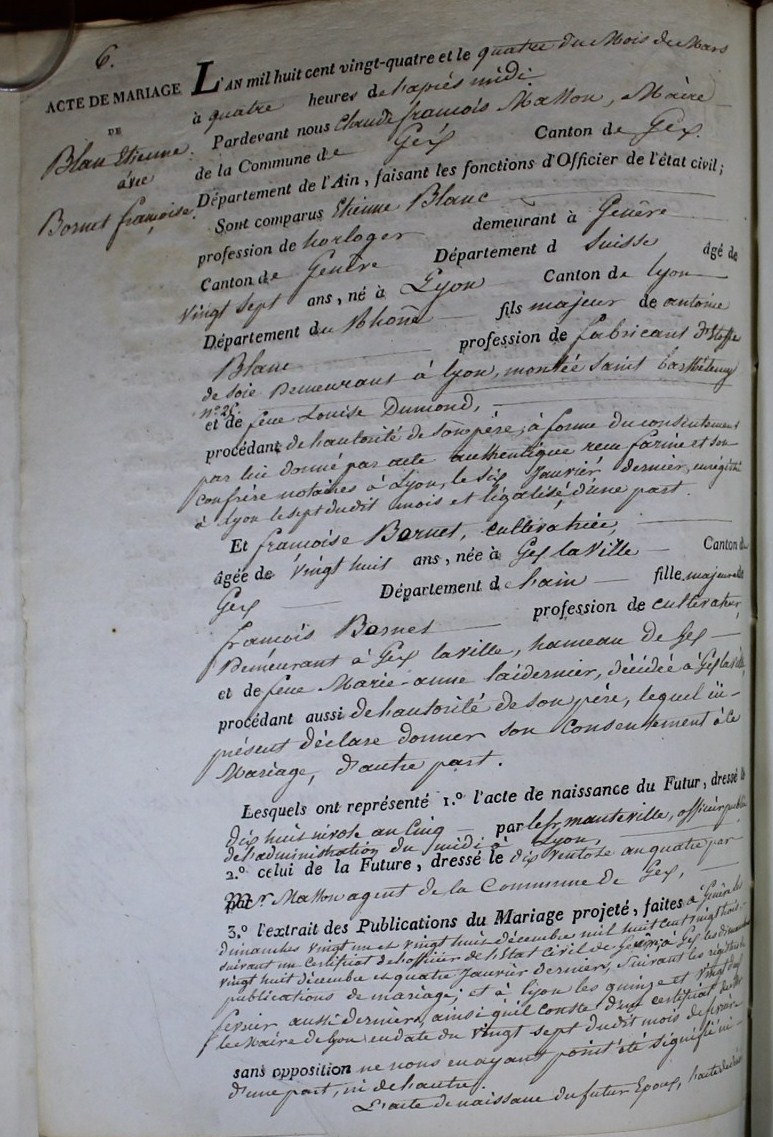 6.
ACTE DE MARIAGE
DE
Blan Etienne
avec
Bornet françoise.
L'AN mil huit cent vingt-quatre et le quatre du Mois de Mars
à quatre heures de l'après midi
Pardevant nous Claude françois Matton, Maire
de la Commune de Gex Canton de Gex.
Département de l'Ain, faisant les fonctions d'Officier de l'état civil;
Sont comparus Etienne Blanc
profession de horloger demeurant à Genève
Canton de Genêve Département d Suisse âgé de
vingt sept ans, né à Lyon Canton de lyon
Département du Rhône fils majeur de antoine
Blanc profession de fabricant d'Etoffe
de soie Demeurant à lyon, montée saint barthélemy
n.º
et de feue Louise Dumond,
procédant de l'autorité de son père, à forme du consentement
par lui donné par acte authentique reçu farine et son
confrère notaires à Lyon, le six Janvier dernier, enrégitré
à Lyon le sept dudit mois et légalisé, d'une part.
Et françoise Bornet, cultivatrice,
âgée de vingt huit ans, née à Gex la Ville Canton de
Gex Département d l'ain fille majeure de
françois Bornet profession de cultivateur,
Demeurant à Gex la ville, hameau de Gex
et de feue Marie-anne laidernier, décédée à Gex la ville,
procédant aussi de l'autorité de son père, lequel ici
présent déclare donner son Consentement à ce
Mariage, d'autre part.
Lesquels ont représenté 1.º l'acte de naissance du Futur, dressé le
dix huit nivose an Cinq par le sr. manteville, officier public
de l'administration du midi à Lyon,
2.º celui de la Future, dressé le dix Ventose an quatre par
Mr. Matton agent de la Commune de Gex,
3.º l'extrait des Publications du Mariage projeté, faites à Genêve les
dimanches vingt un et vingt huit décembre mil huit cent vingt trois,
suivant un Certificat de l'officier de l'Etat Civil de Genève, à Gex les dimanches
vingt huit décembre et quatre Janvier derniers, suivant les régistres de
publications de mariage; et à lyon les quinze et vingt deux
février aussi derniers, ainsi qu'il conste d'un certificat de Mr
le Maire de Lyon en date du vingt sept dudit mois de février
sans opposition ne nous en ayant point été signifié ni
d'une part, ni de l'autre.
L'acte de naissance du futur Epoux,